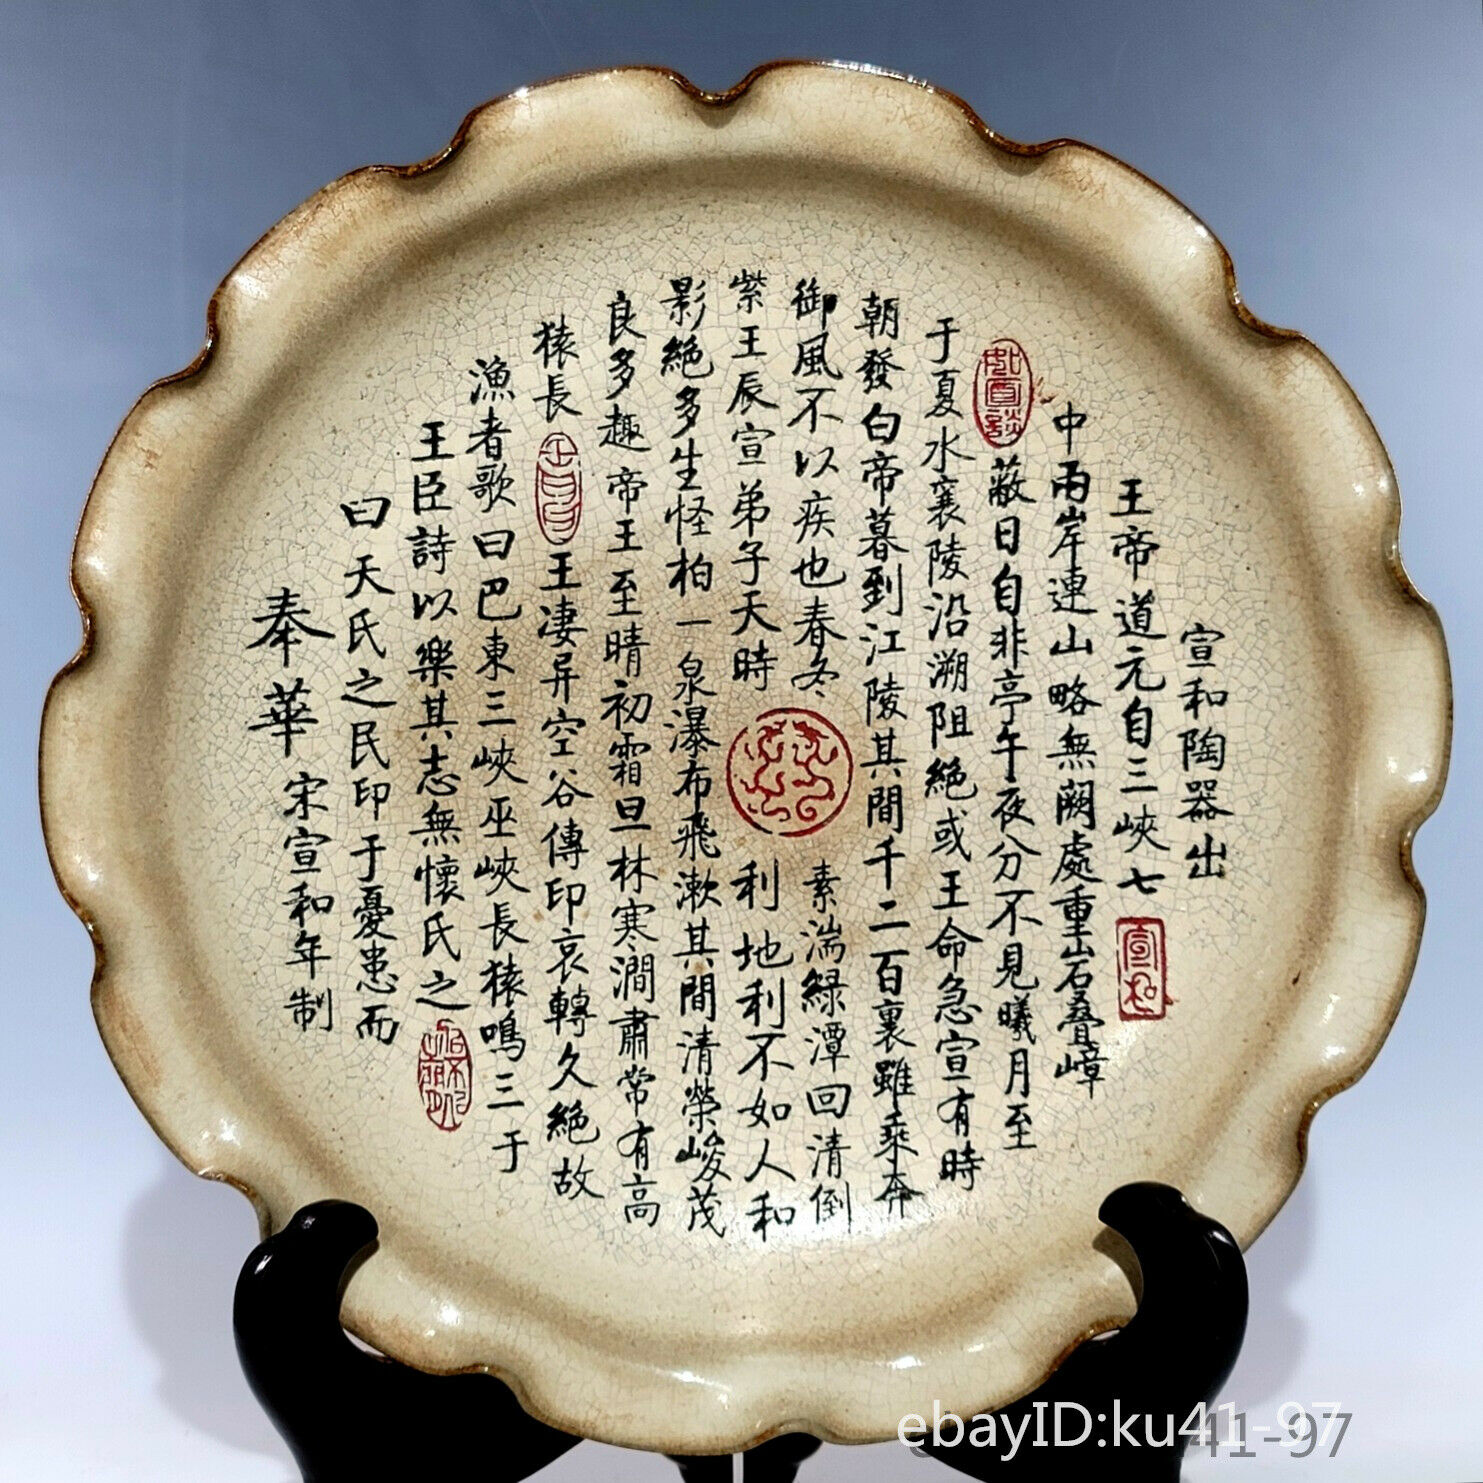 宣和陶器出
王帝道元自三峽七
宣和
中兩岸連山略無闕處重岩叠嶂
蔽日自非亭午夜分不見曦月至
于夏水襄陵沿溯阻絕或王命急宣有時
朝發白帝暮到江陵其間千二百裏雖乘奔
御風不以疾也春冬
素湍綠潭回清倒
紫王辰宣弟子天時
利地利不如人和
影絕多生怪柏一泉瀑布飛漱其間清榮峻茂
良多趣帝王至晴初霜旦林寒澗肅常有高
猿長
王淒异空谷傳印哀轉久絕故
漁者歌曰巴東三峽巫峽長猿鳴三于
王臣詩以樂其志無懷氏之
曰天氏之民印于憂患而
奉華
宋宣和年制
ebayID:ku41-97
41-97